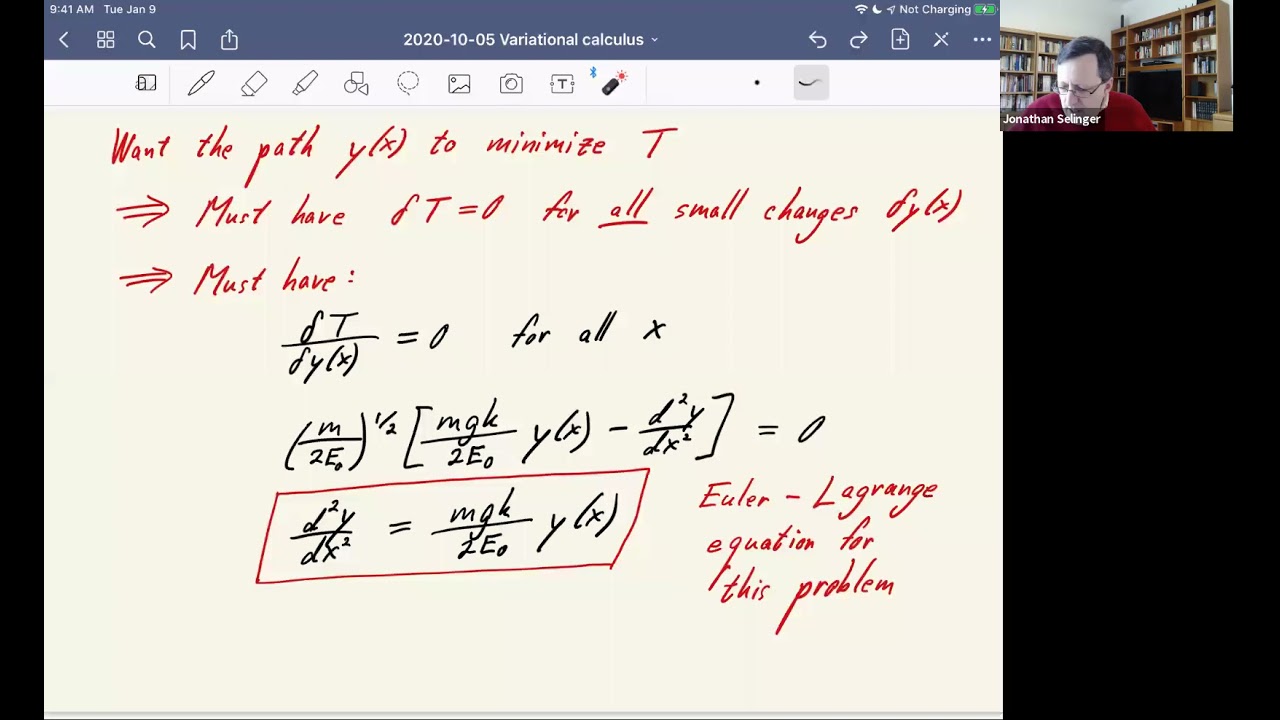 9:41 AM Tue Jan 9
Not Charging
2020-10-05 Variational calculus
T
Jonathan Selinger
Want the path y(x) to minimize T
⟹ Must have δT=0 for all small changes δy(x)
⟹ Must have:
δT/δy(x) = 0 for all x
(m/2E₀)^1/2 [mgk/2E₀ y(x) − d²y/dx²] = 0
d²y/dx² = mgk/2E₀ y(x)
Euler - Lagrange
equation for
this problem